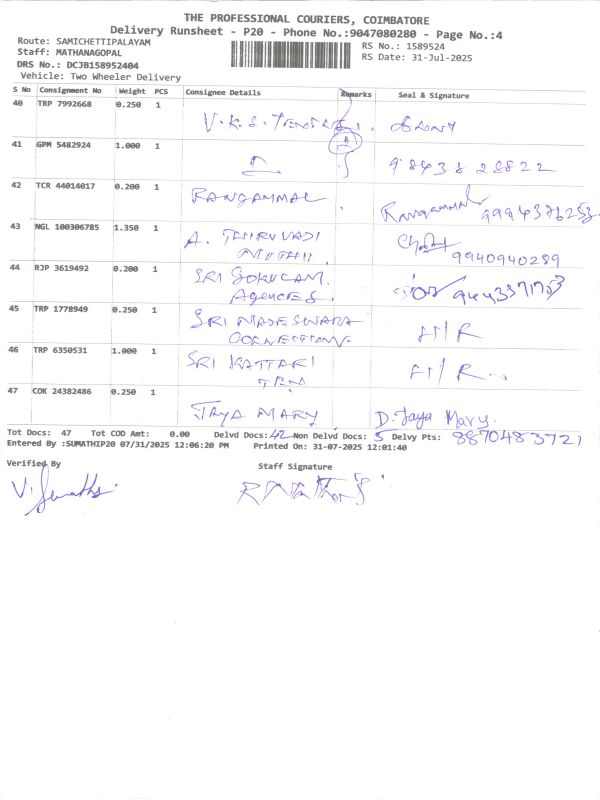 THE PROFESSIONAL COURIERS, COIMBATORE
Delivery Runsheet - P20 - Phone No.:9047080280 - Page No.:4
Route: SAMICHETTIPALAYAM
RS No.: 1589524
Staff: MATHANAGOPAL
RS Date: 31-Jul-2025
DRS No.: DCJB158952404
Vehicle: Two Wheeler Delivery
S No Consignment No Weight PCS Consignee Details Remarks Seal & Signature
40 TRP 7992668 0.250 1
V.K.S.
41 GPM 5482924 1.000 1
98438 28822
42 TCR 44014017 0.200 1 RANGAMMAL Rangammal 9994376253
43 NGL 100306785 1.350 1 A. THIRUVADI
9940940289
44 RJP 3619492 0.200 1 SRI GOKULAM
AGENCIES
45 TRP 1778949 0.250 1 SRI
46 TRP 6350531 1.000 1 SRI
47 COK 24382486 0.250 1 JAYA MARY D. Jaya Mary
Tot Docs: 47 Tot COD Amt: 0.00 Delvd Docs: 42 Non Delvd Docs: 5 Delvy Pts: 8870483721
Entered By :SUMATHIP20 07/31/2025 12:06:20 PM Printed On: 31-07-2025 12:01:40
Verified By Staff Signature
V. Sumathi